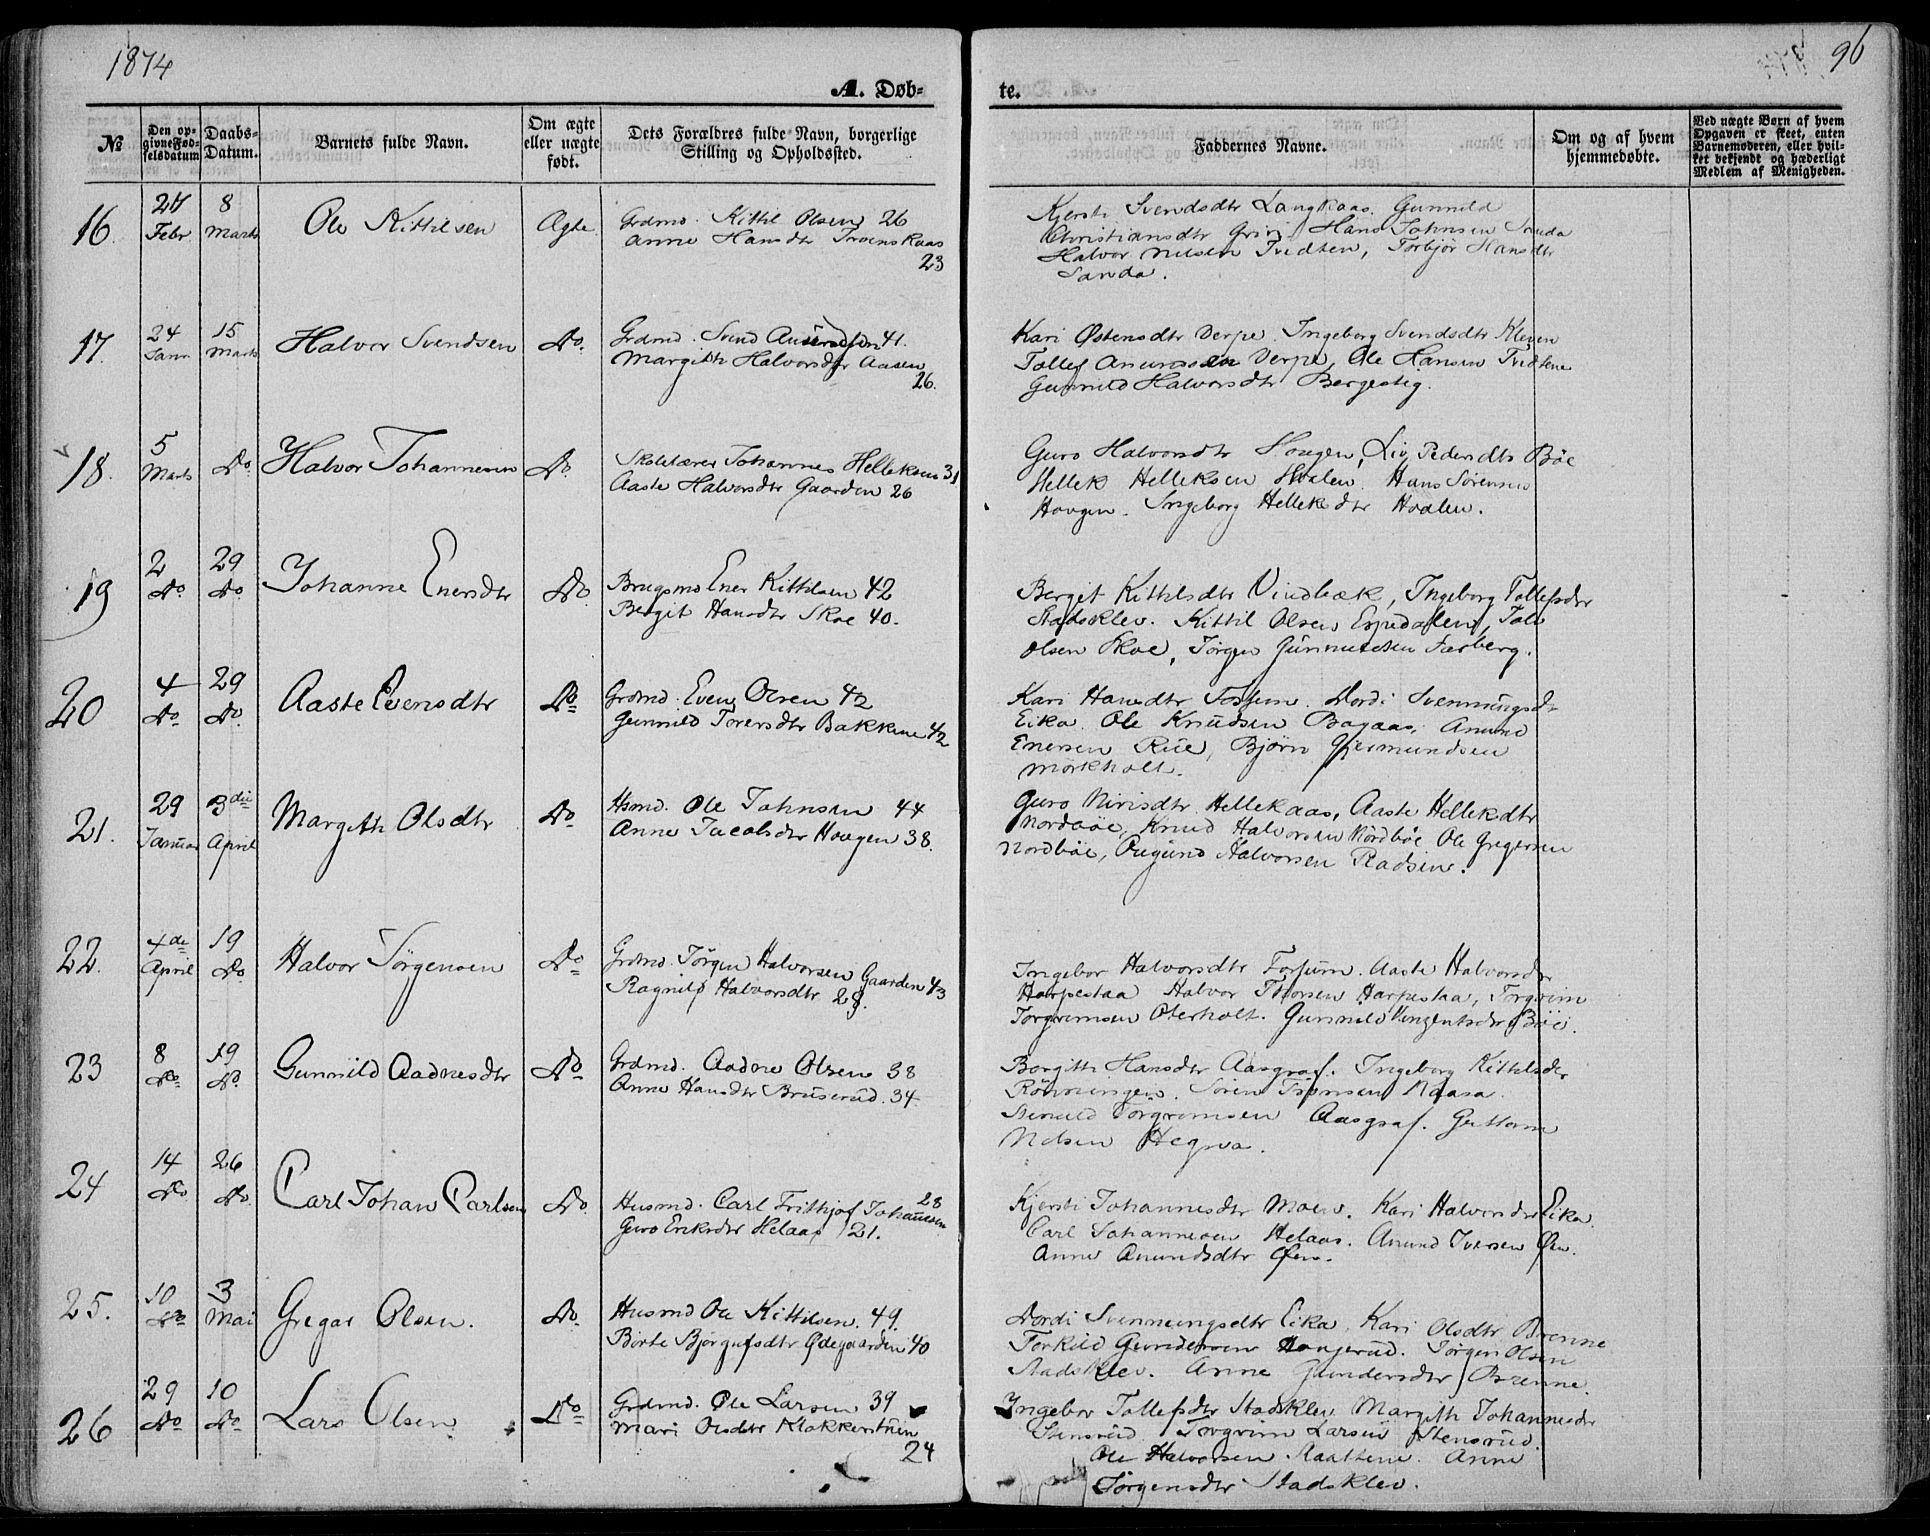 1874
96
A. Døb-
te.
№
Den op-
givne Fød-
selsdatum
Daabs-
Datum.
Barnets fulde Navn.
Om ægte
eller uægte
født.
Dets Forældres fulde Navn, borgerlige
Stilling og Opholdssted.
Faddernes Navne.
Om og af hvem
hjemmedøbte.
Ved uægte Børn af hvem
Opgaven er skeet, enten
Barnemoderen, eller hvil-
ket bekjendt og hæderligt
Medlem af Menigheden.
16.
Febr
8
Marts
Ole Kittilsen
Ægte
Grdmd. Kittil Olsen 26
Anne Hansdt Troenskaas
23
Kjersti Svendsdtr Langkaas. Gunnild
Christiansdtr Grivi Hans Johnsen Sanda
Halvor Nilsen Tvedten, Torbjør Hansdtr
Sanda.
17.
24
Janr
15
Marts
Halvor Svendsen
Do.
Grdmd. Svend 41.
Margith Halvorsdtr Aasen
26.
Kari Østensdtr Verpe. Ingeborg Svendsdtr Kleven
Tollef Verpe, Ole Hansen Tvedtene
Gunnild Halvorsdtr Bergestig.
18.
5
Marts
Do
Halvor Johannesen
Do
Skolelærer Johannes Helleksen 31
Aaste Halvorsdtr Gaarden 26
Guro Halvorsdtr Hougen, Liv Pedersdtr Bøe
Hellek Helleksen Hvalen. Hans Sörensen
Hougen. Ingeborg Helleksdtr Hvalen.
19
2
Do
29
Do.
Johanne Enersdtr
Do
Brugsmd Ener Kittilsen 42
Bergit Hansdtr Skoe 40.
Bergit Kittilsdtr Vindbæk, Ingeborg Tollefsdtr
Stadsklev. Kittil Olsen Espedalen, Tov
Olsen Skoe, Jörgen Gunnulsen Farberg.
20
4
Do
29
Do.
Aaste Evensdtr
Do
Grdmd. Even Olsen 42
Gunnild Torersdtr Bakkene 42
Kari Hansdtr Dordi Svennungsdtr
Eika. Ole Knudsen Bagaas, Anund
Enersen Rue, Bjørn Gjermundsen
Mörkholt.
21.
29
Januar
3die
April
Margith Olsdtr
Do
Hsmd. Ole Johnsen 44
Anne Jacobsdtr Hougen 38.
Guro Nirisdtr Hellekaas, Aaste Hellekdtr
Nordbøe, Knud Halvorsen Nordbøe Ole Gregersen
Nordbøe, Halvorsen
22.
4de
April
19
Do
Halvor Jörgensen
Do
Grdmd. Jörgen Halvorsen Gaarden 43
Ragnild Halvorsdtr 28.
Ingebor Halvorsdtr Forsum. Aaste Halvorsdtr
Harpestaa Halvor Thorsen Harpestaa, Torgrim
Torgrimsen Oterholt. Gunnild Vinzentsdtr Bøe.
23
8
Do
19
Do
Gunnild Aadnesdtr
Do
Grdmd. Aadne Olsen 38
Anne Hansdtr Bruserud. 34
Borgith Hansdtr Aasgraf. Ingeborg Kittilsdtr
Rönningen. Sören Naasa.
Torgrimsen Aasgraf. Guttorm
Nilsen Hegna.
24
14
Do
26
Do
Carl Johan Carlsen
Do
Husmd. Carl Frithjof Johannesen 28
Guro Eriksdtr Helaas 21.
Kjersti Johannesdtr Moen. Kari Halvorsdtr Eika.
Carl Johannesen Helaas. Anund Iversen Øen.
Anne Anundsdtr Øen.
25.
10
Do
3
Mai
Gregar Olsen.
Do
Husmd Ole Kittilsen. 49.
Börte Björgufsdtr Ødegaarden 40
Dordi Svennungsdtr Eika, Kari Olsdtr Brenne
Torkild Gundersen Jörgen Olsen
Stadsklev. Anne Gundersdtr Brenne.
26
29
Do
10
Do
Lars Olsen
Do
Grdmd. Ole Larsen 39
Mari Olsdtr Klokkerstuen
24
Ingebor Tollefsdtr Stadsklev Margith Johannesdtr
Stensrud Torgrim Larsen Stensrud.
Ole Halvorsen Anne
Jörgensdtr Stadsklev.